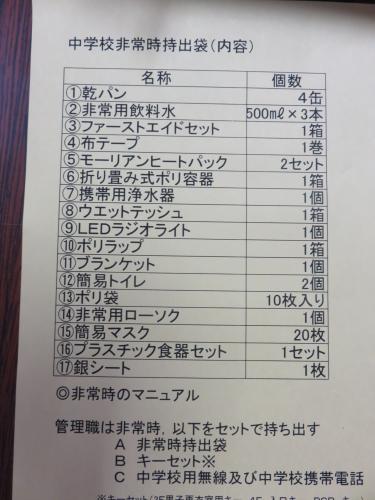 中学校非常時持出袋(内容)
名称 個数
①乾パン 4缶
②非常用飲料水 500㎖×3本
③ファーストエイドセット 1箱
④布テープ 1巻
⑤モーリアンヒートパック 2セット
⑥折り畳み式ポリ容器 1箱
⑦携帯用浄水器 1個
⑧ウエットテッシュ 1箱
⑨LEDラジオライト 1個
⑩ポリラップ 1箱
⑪ブランケット 1個
⑫簡易トイレ 2個
⑬ポリ袋 10枚入り
⑭非常用ローソク 1個
⑮簡易マスク 20枚
⑯プラスチック食器セット 1セット
⑰銀シート 1枚
◎非常時のマニュアル
管理職は非常時，以下をセットで持ち出す
A 非常時持出袋
B キーセット※
C 中学校用無線及び中学校携帯電話
※キーセット(3F男子更衣室用キー